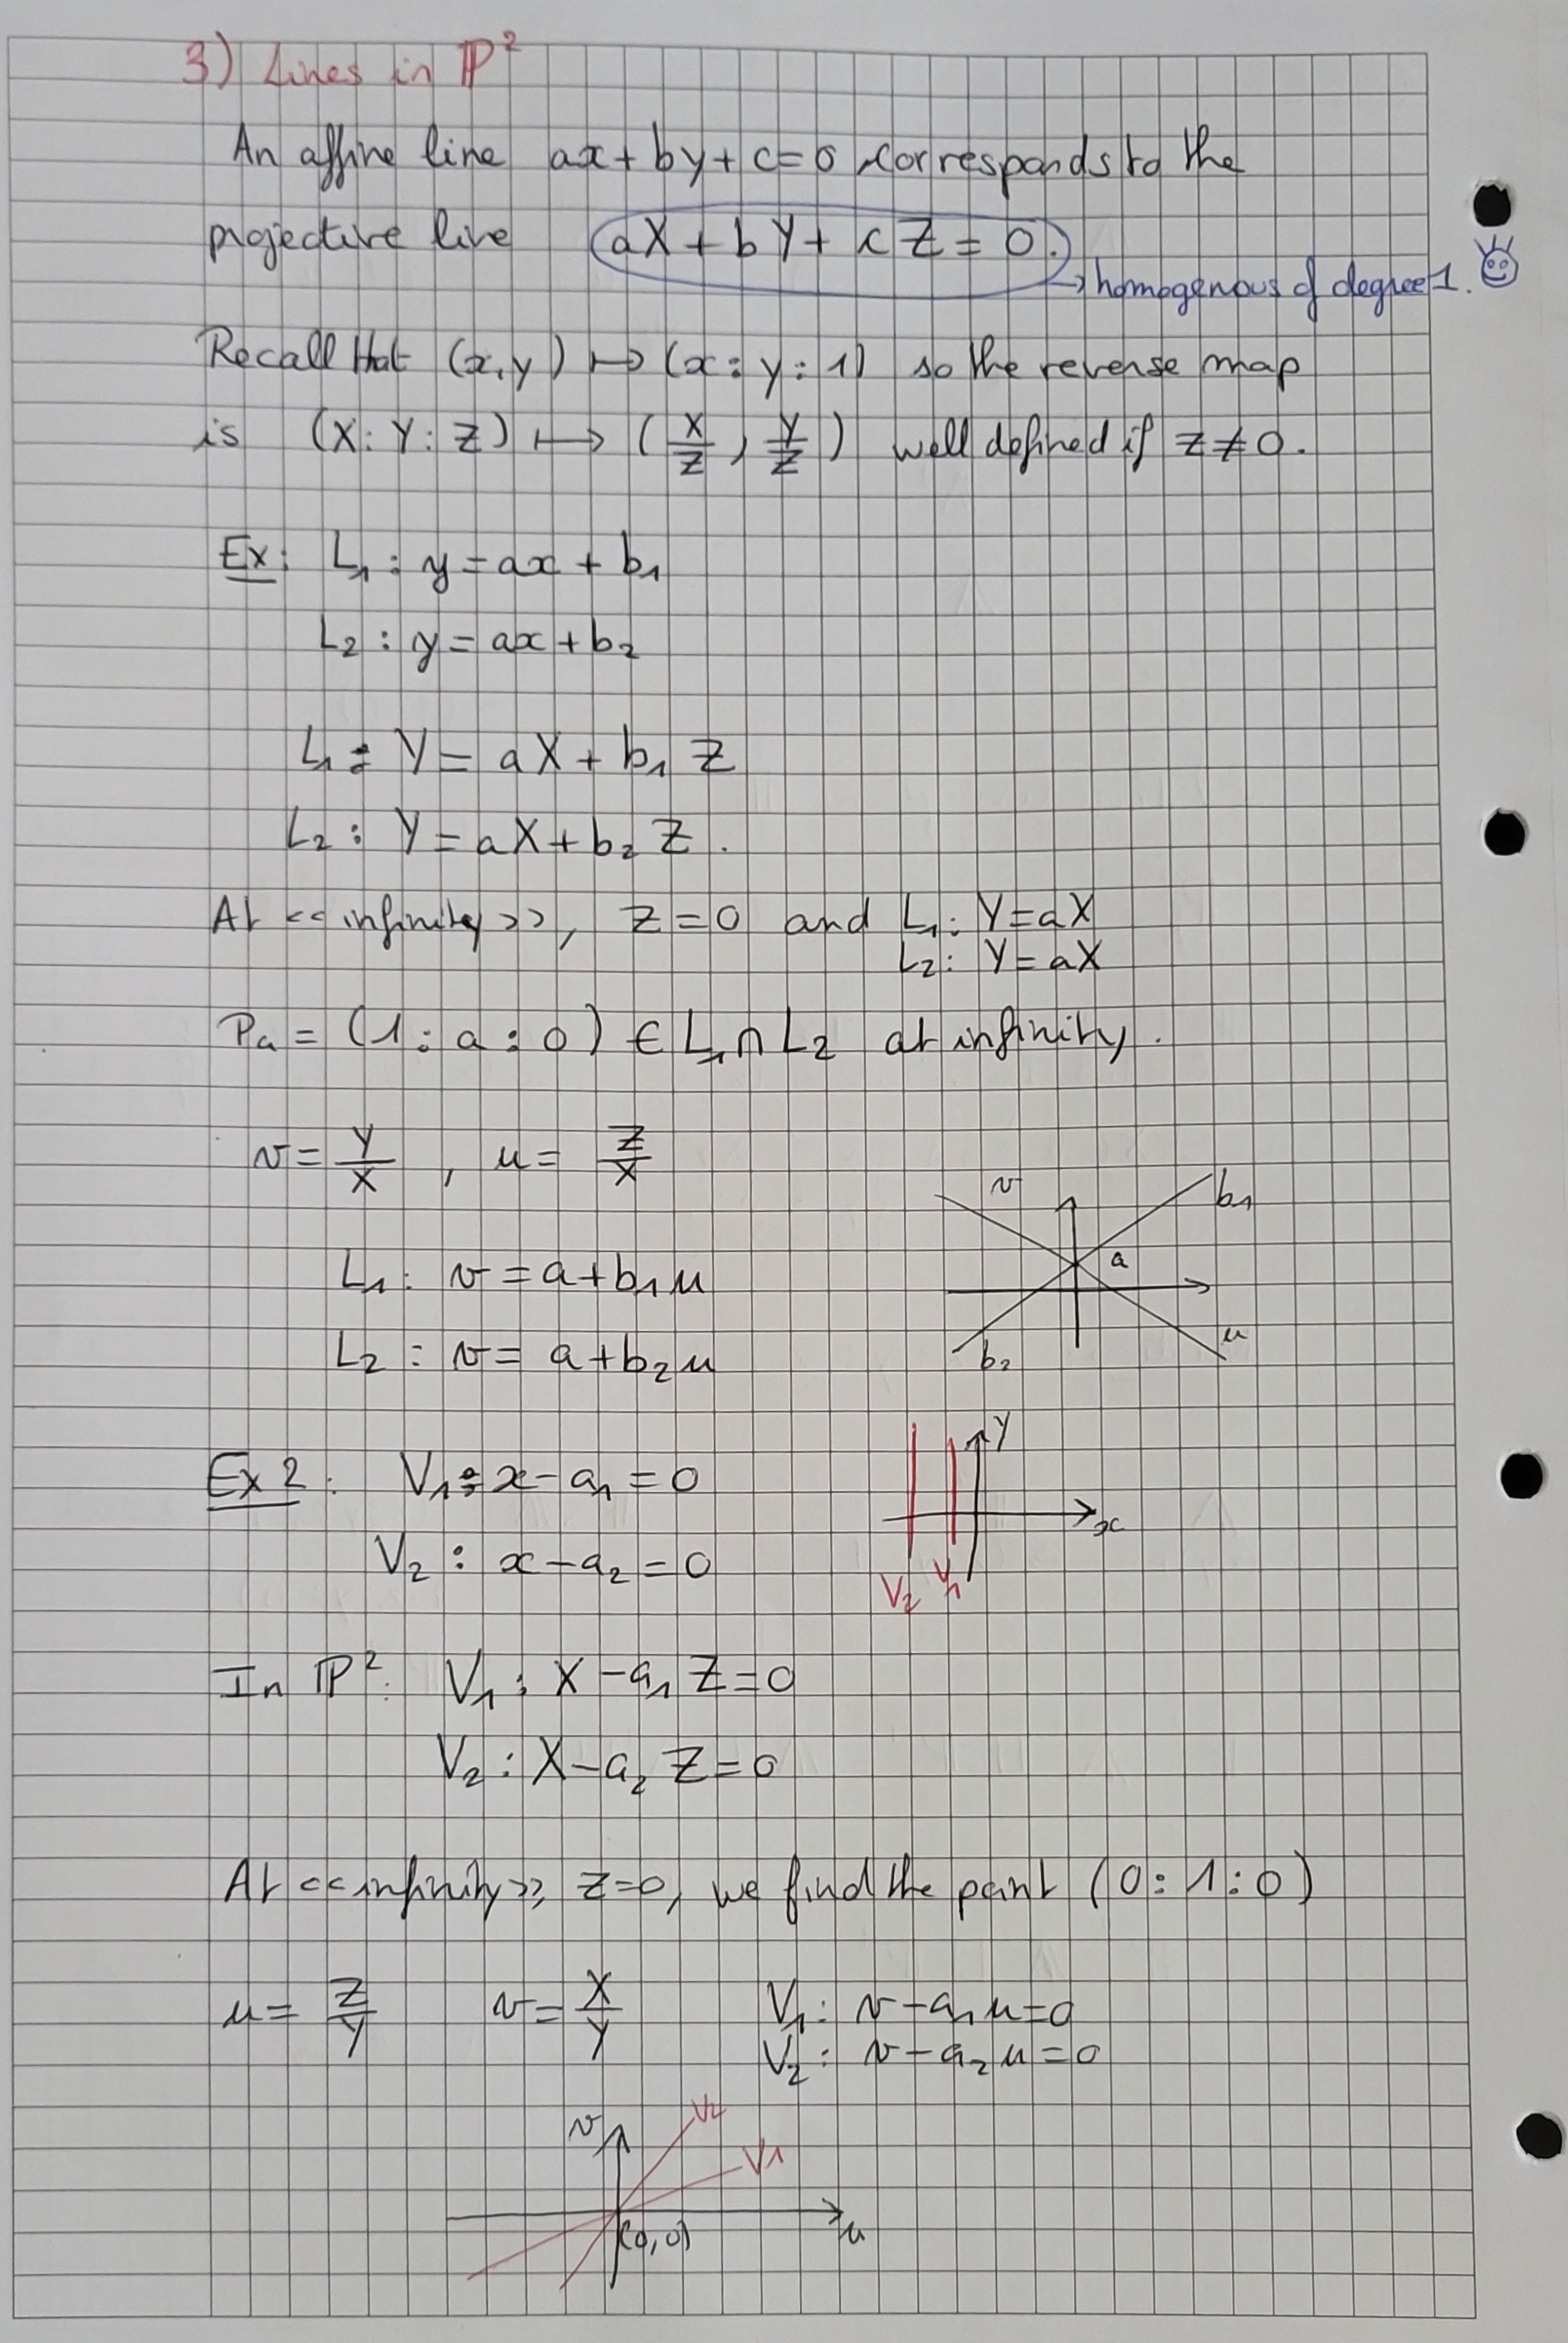 3) Lines in ℙ²
An affine line ax + by + c = 0 corresponds to the
projective line aX + bY + cZ = 0.
→ homogenous of degree 1.
Recall that (x,y) ↦ (x : y : 1) so the reverse map
is (X : Y : Z) ↦ (X/Z, Y/Z) well defined if Z ≠ 0.
Ex: L₁ : y = ax + b₁
L₂ : y = ax + b₂
L₁ : Y = aX + b₁ Z
L₂ : Y = aX + b₂ Z.
At << infinity >>, Z = 0 and L₁ : Y = aX
L₂ : Y = aX
Pₐ = (1 : a : 0) ∈ L₁ ∩ L₂ at infinity.
v = Y/X , u = Z/X
v
b₁
a
L₁ : v = a + b₁u
u
L₂ : v = a + b₂u
b₂
Ex 2 : V₁ : x - a₁ = 0
y
x
V₂ : x - a₂ = 0
V₂ V₁
In ℙ² : V₁ : X - a₁ Z = 0
V₂ : X - a₂ Z = 0
At << infinity >>, Z = 0, we find the point (0 : 1 : 0)
u = Z/Y v = X/Y V₁ : v - a₁u = 0
V₂ : v - a₂u = 0
v V₂
V₁
(0,0) u